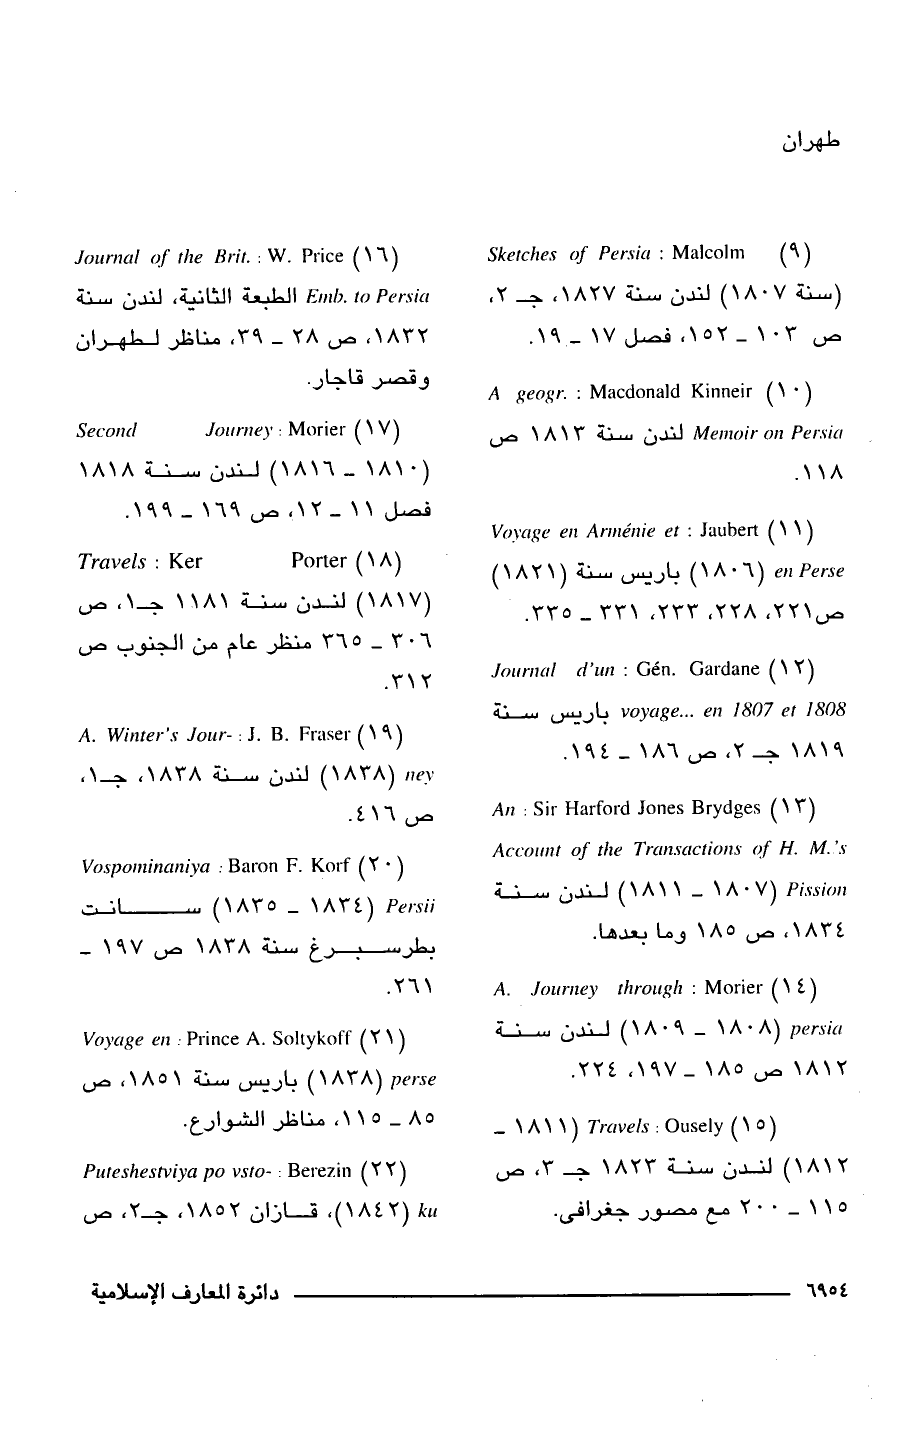 طهران
(٩) Sketches of Persia : Malcolm
(سنة ١٨٠٧) لندن سنة ١٨٢٧، جـ ٢،
ص ١٠٣ ــ ١٥٢، فصل ١٧ ــ ١٩.
(١٠) A geogr. : Macdonald Kinneir
Memoir on Persia لندن سنة ١٨١٣ ص
١١٨.
(١١) Voyage en Arménie et : Jaubert
en Perse (١٨٠٦) باريس سنة (١٨٢١)
ص٢٢١، ٢٢٨، ٢٣٣، ٣٣١ ــ ٣٣٥.
(١٢) Journal d'un : Gén. Gardane
voyage... en 1807 et 1808 باريس سنة
١٨١٩ جـ ٢، ص ١٨٦ ــ ١٩٤.
(١٣) An : Sir Harford Jones Brydges
Account of the Transactions of H. M.'s
Pission (١٨٠٧ ــ ١٨١١) لندن سنة
١٨٣٤، ص ١٨٥ وما بعدها.
(١٤) A. Journey through : Morier
persia (١٨٠٨ ــ ١٨٠٩) لندن سنة
١٨١٢ ص ١٨٥ ــ ١٩٧، ٢٢٤.
(١٥) Travels : Ousely (١٨١١ ــ
١٨١٢) لندن سنة ١٨٢٣ جـ ٣، ص
١١٥ ــ ٢٠٠ مع مصور جغرافى.
(١٦) Journal of the Brit. : W. Price
Emb. to Persia الطبعة الثانية، لندن سنة
١٨٣٢، ص ٢٨ ــ ٣٩، مناظر لطهران
وقصر قاجار.
(١٧) Second Journey : Morier
(١٨١٠ ــ ١٨١٦) لندن سنة ١٨١٨
فصل ١١ ــ ١٢، ص ١٦٩ ــ ١٩٩.
(١٨) Travels : Ker Porter
(١٨١٧) لندن سنة ١١٨١ جـ١، ص
٣٠٦ ــ ٣٦٥ منظر عام من الجنوب ص
٣١٢.
(١٩) A. Winter's Jour- : J. B. Fraser
ney (١٨٣٨) لندن سنة ١٨٣٨، جـ١،
ص ٤١٦.
(٢٠) Vospominaniya : Baron F. Korf
Persii (١٨٣٤ ــ ١٨٣٥) سانت
بطرسبرغ سنة ١٨٣٨ ص ١٩٧ ــ
٢٦١.
(٢١) Voyage en : Prince A. Soltykoff
perse (١٨٣٨) باريس سنة ١٨٥١، ص
٨٥ ــ ١١٥، مناظر الشوارع.
(٢٢) Puteshestviya po vsto- : Berezin
ku (١٨٤٢)، قازان ١٨٥٢، جـ٢، ص
٦٩٥٤ دائرة المعارف الإسلامية